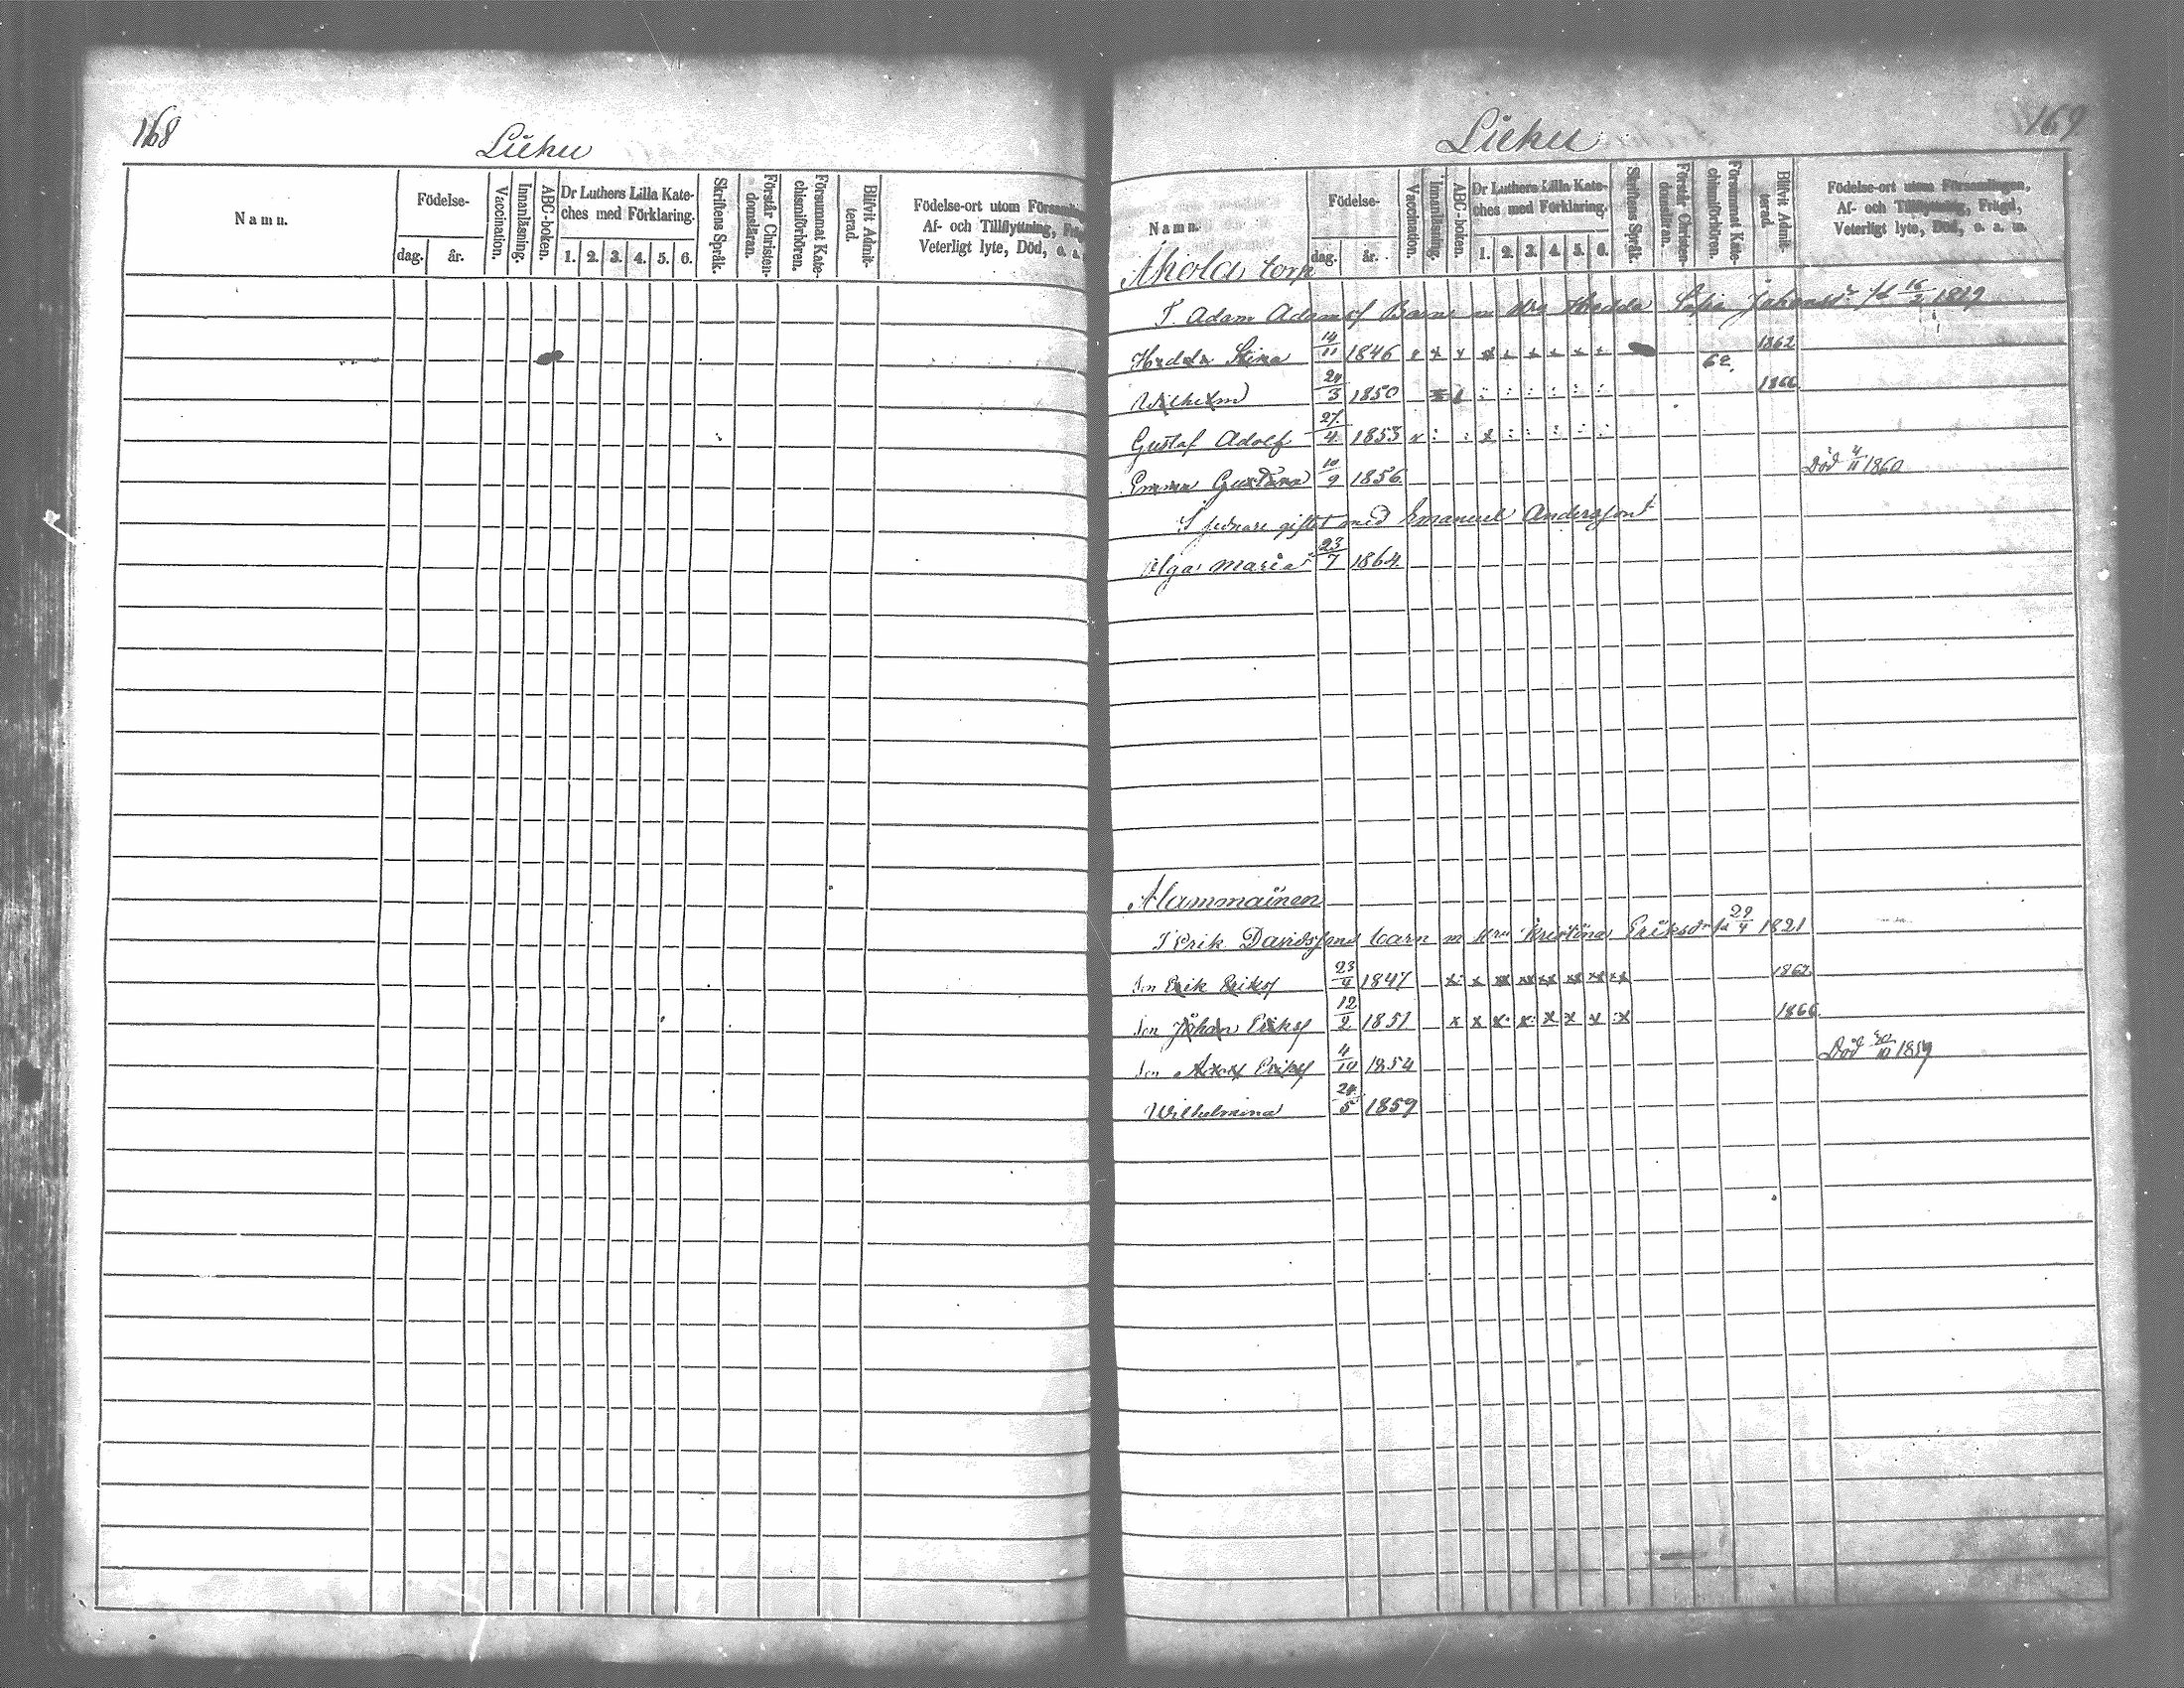 168
Liehu
Namn.
Födelse-
dag. år.
Vaccination.
Innanläsning.
ABC-boken.
Dr Luthers Lilla Kate-
ches med Förklaring.
1. 2. 3. 4. 5. 6.
Skriftens Språk.
Förstår Christen-
domsläran.
Försummat Kate-
chismiförhören.
Blifvit Admit-
terad.
Födelse-ort utom
Af- och Tillflyttning,
Veterligt lyte, Död, o. a.
169
Liehu
Namn.
Födelse-
dag. år.
Vaccination.
Innanläsning.
ABC-boken.
Dr Luthers Lilla Kate-
ches med Förklaring.
1. 2. 3. 4. 5. 6.
Skriftens Språk.
Förstår Christen-
domsläran.
Försummat Kate-
chismiförhören.
Blifvit Admit-
terad.
Födelse-ort utom Församlingen,
Af- och Tillflyttning, Frägd,
Veterligt lyte, Död, o. a. m.
Ahola torp
T. Adam Adamsf Barn m Hedda 16/2 1819
Hedda Stina 14/11 1846 1862
Wilhelm 24/3 1850 1866
Gustaf Adolf 27/4 1853
Emma Gustava 10/9 1856 Död 4/11 1860
I sednare giftet med Emanuel Andersson
Olga Maria 23/7 1864
Alammainen
T Erik Davidssons barn m Kristina Eriksdr 29/4 1821
Son Erik Eriksf 23/4 1847 1862
Son Johan Eriksf 12/2 1851 1866
Son Eriksf 1854 Död 1859
Wilhelmina 24/5 1859